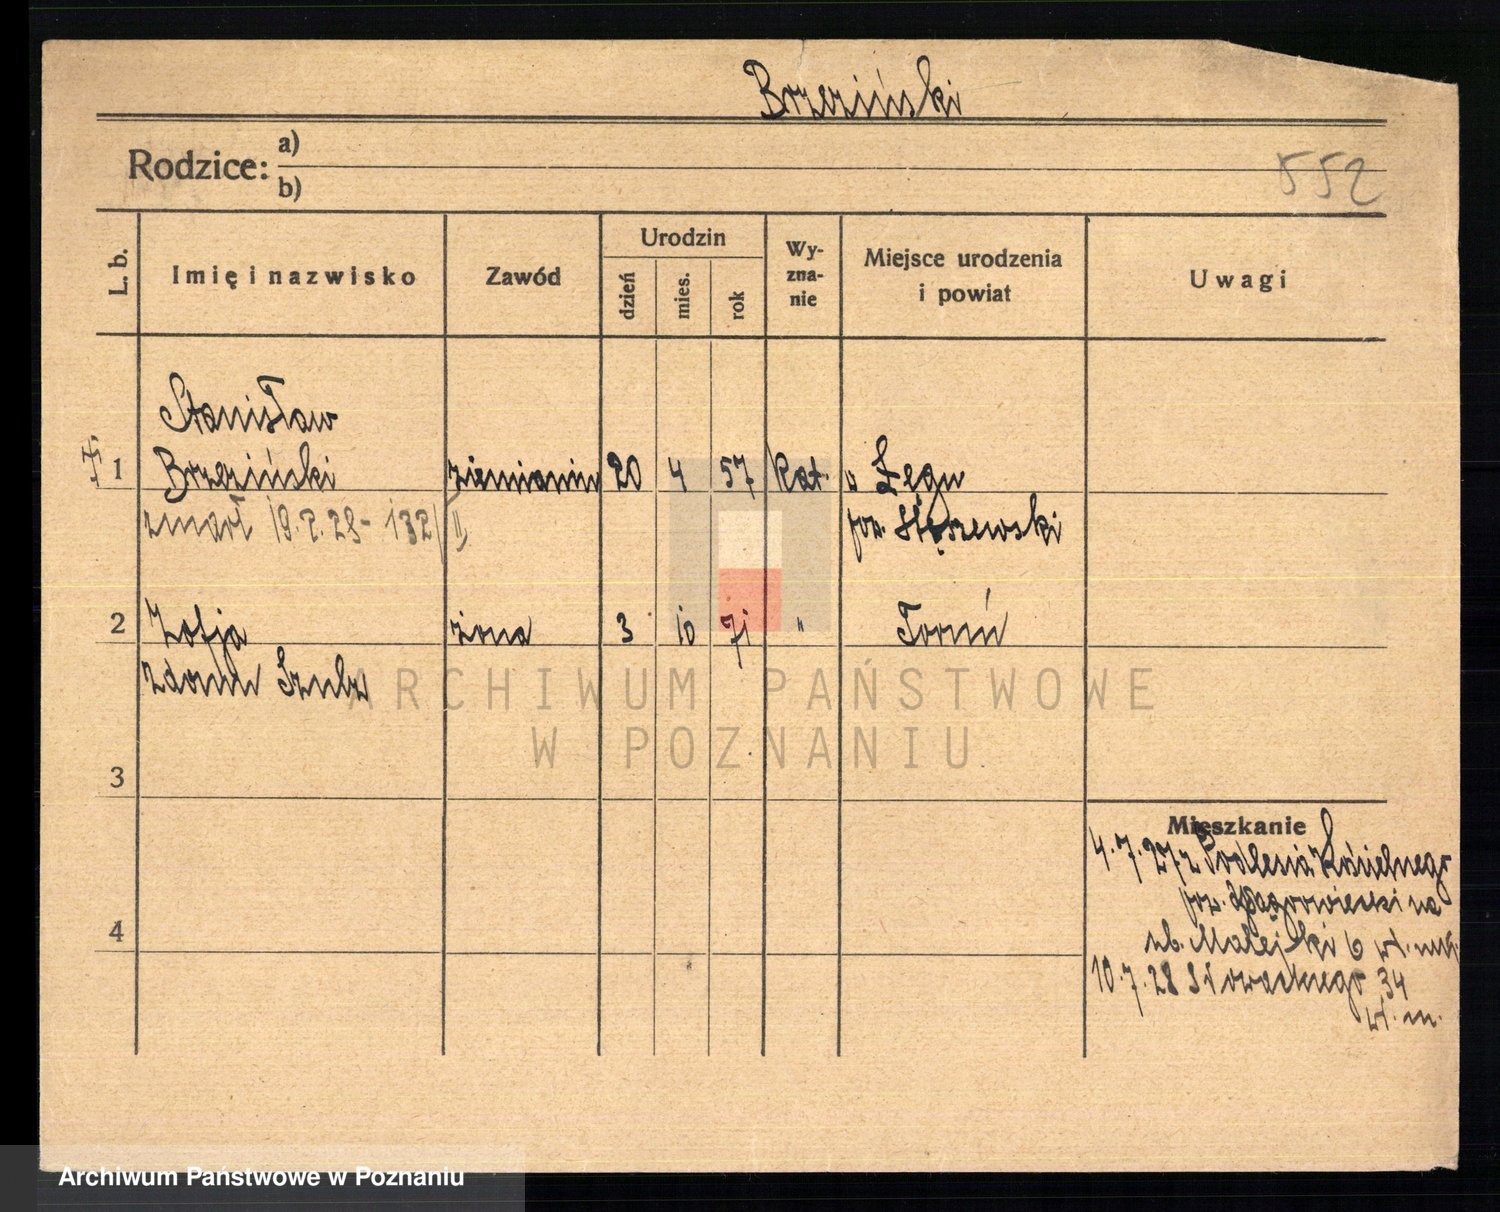 Brzeziński
Rodzice: a)
b)
552
L. b.
Imię i nazwisko
Zawód
Urodzin
dzień
mies.
rok
Wy-
zna-
nie
Miejsce urodzenia
i powiat
Uwagi
Stanisław
1 Brzeziński ziemianin 20 4 57 kat. Łegu
zmarł 132/II pow.
2 Zofja żona 3 10 71 " Toruń
zdomu Szulz
ARCHIWUM PAŃSTWOWE
W POZNANIU
3
Mieszkanie
4.7.27 z Podlesia Kościelnego
pow. Wągrowiecki na
4
ul. Matejki 6
10.7.28 Słowackiego 34
Archiwum Państwowe w Poznaniu